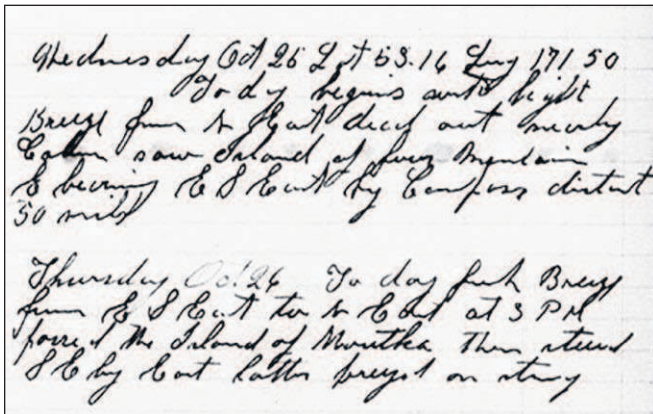 Wednesday Oct 25 Lat 53.16 Long 171 50
To day begins with light
Breeze from N East decof out nearly
Calm saw Island of four Mountain
E bearing E S East by Compass distant
50 mils
Thursday Oct 26 To day fresh Breeze
from E S East to N East at 3 PM
passed the Island of then steerd
S E by East latter on strong